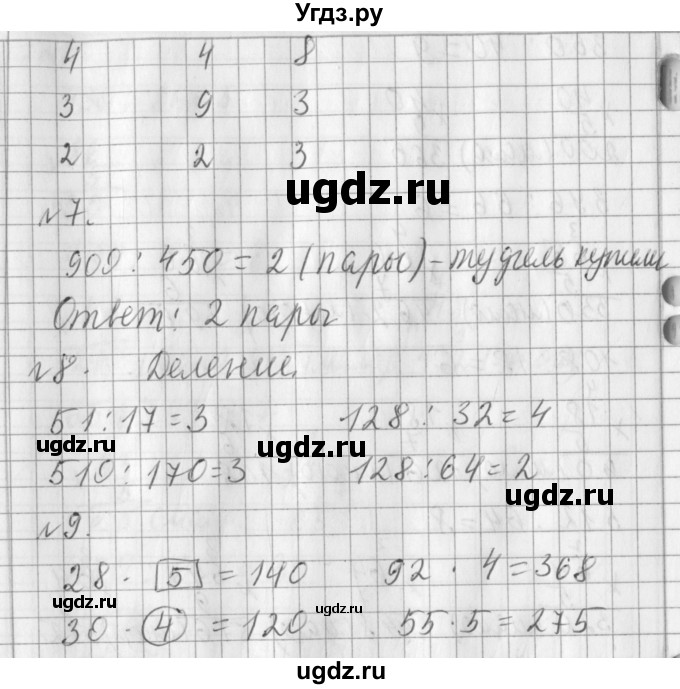 Угдз.ру
4 4 8
3 9 3
2 2 3
ugdz.ru
№7.
900 : 450 = 2 (пары) - туфель купили
Ответ: 2 пары
ugdz.ru
№8. Деление.
51 : 17 = 3 128 : 32 = 4
ugdz.ru ugdz.ru
510 : 170 = 3 128 : 64 = 2
ugdz.ru
№9.
28 · 5 = 140 92 · 4 = 368
ugdz.ru ugdz.ru
30 · 4 = 120 55 · 5 = 275
ugdz.ru
ugdz.ru